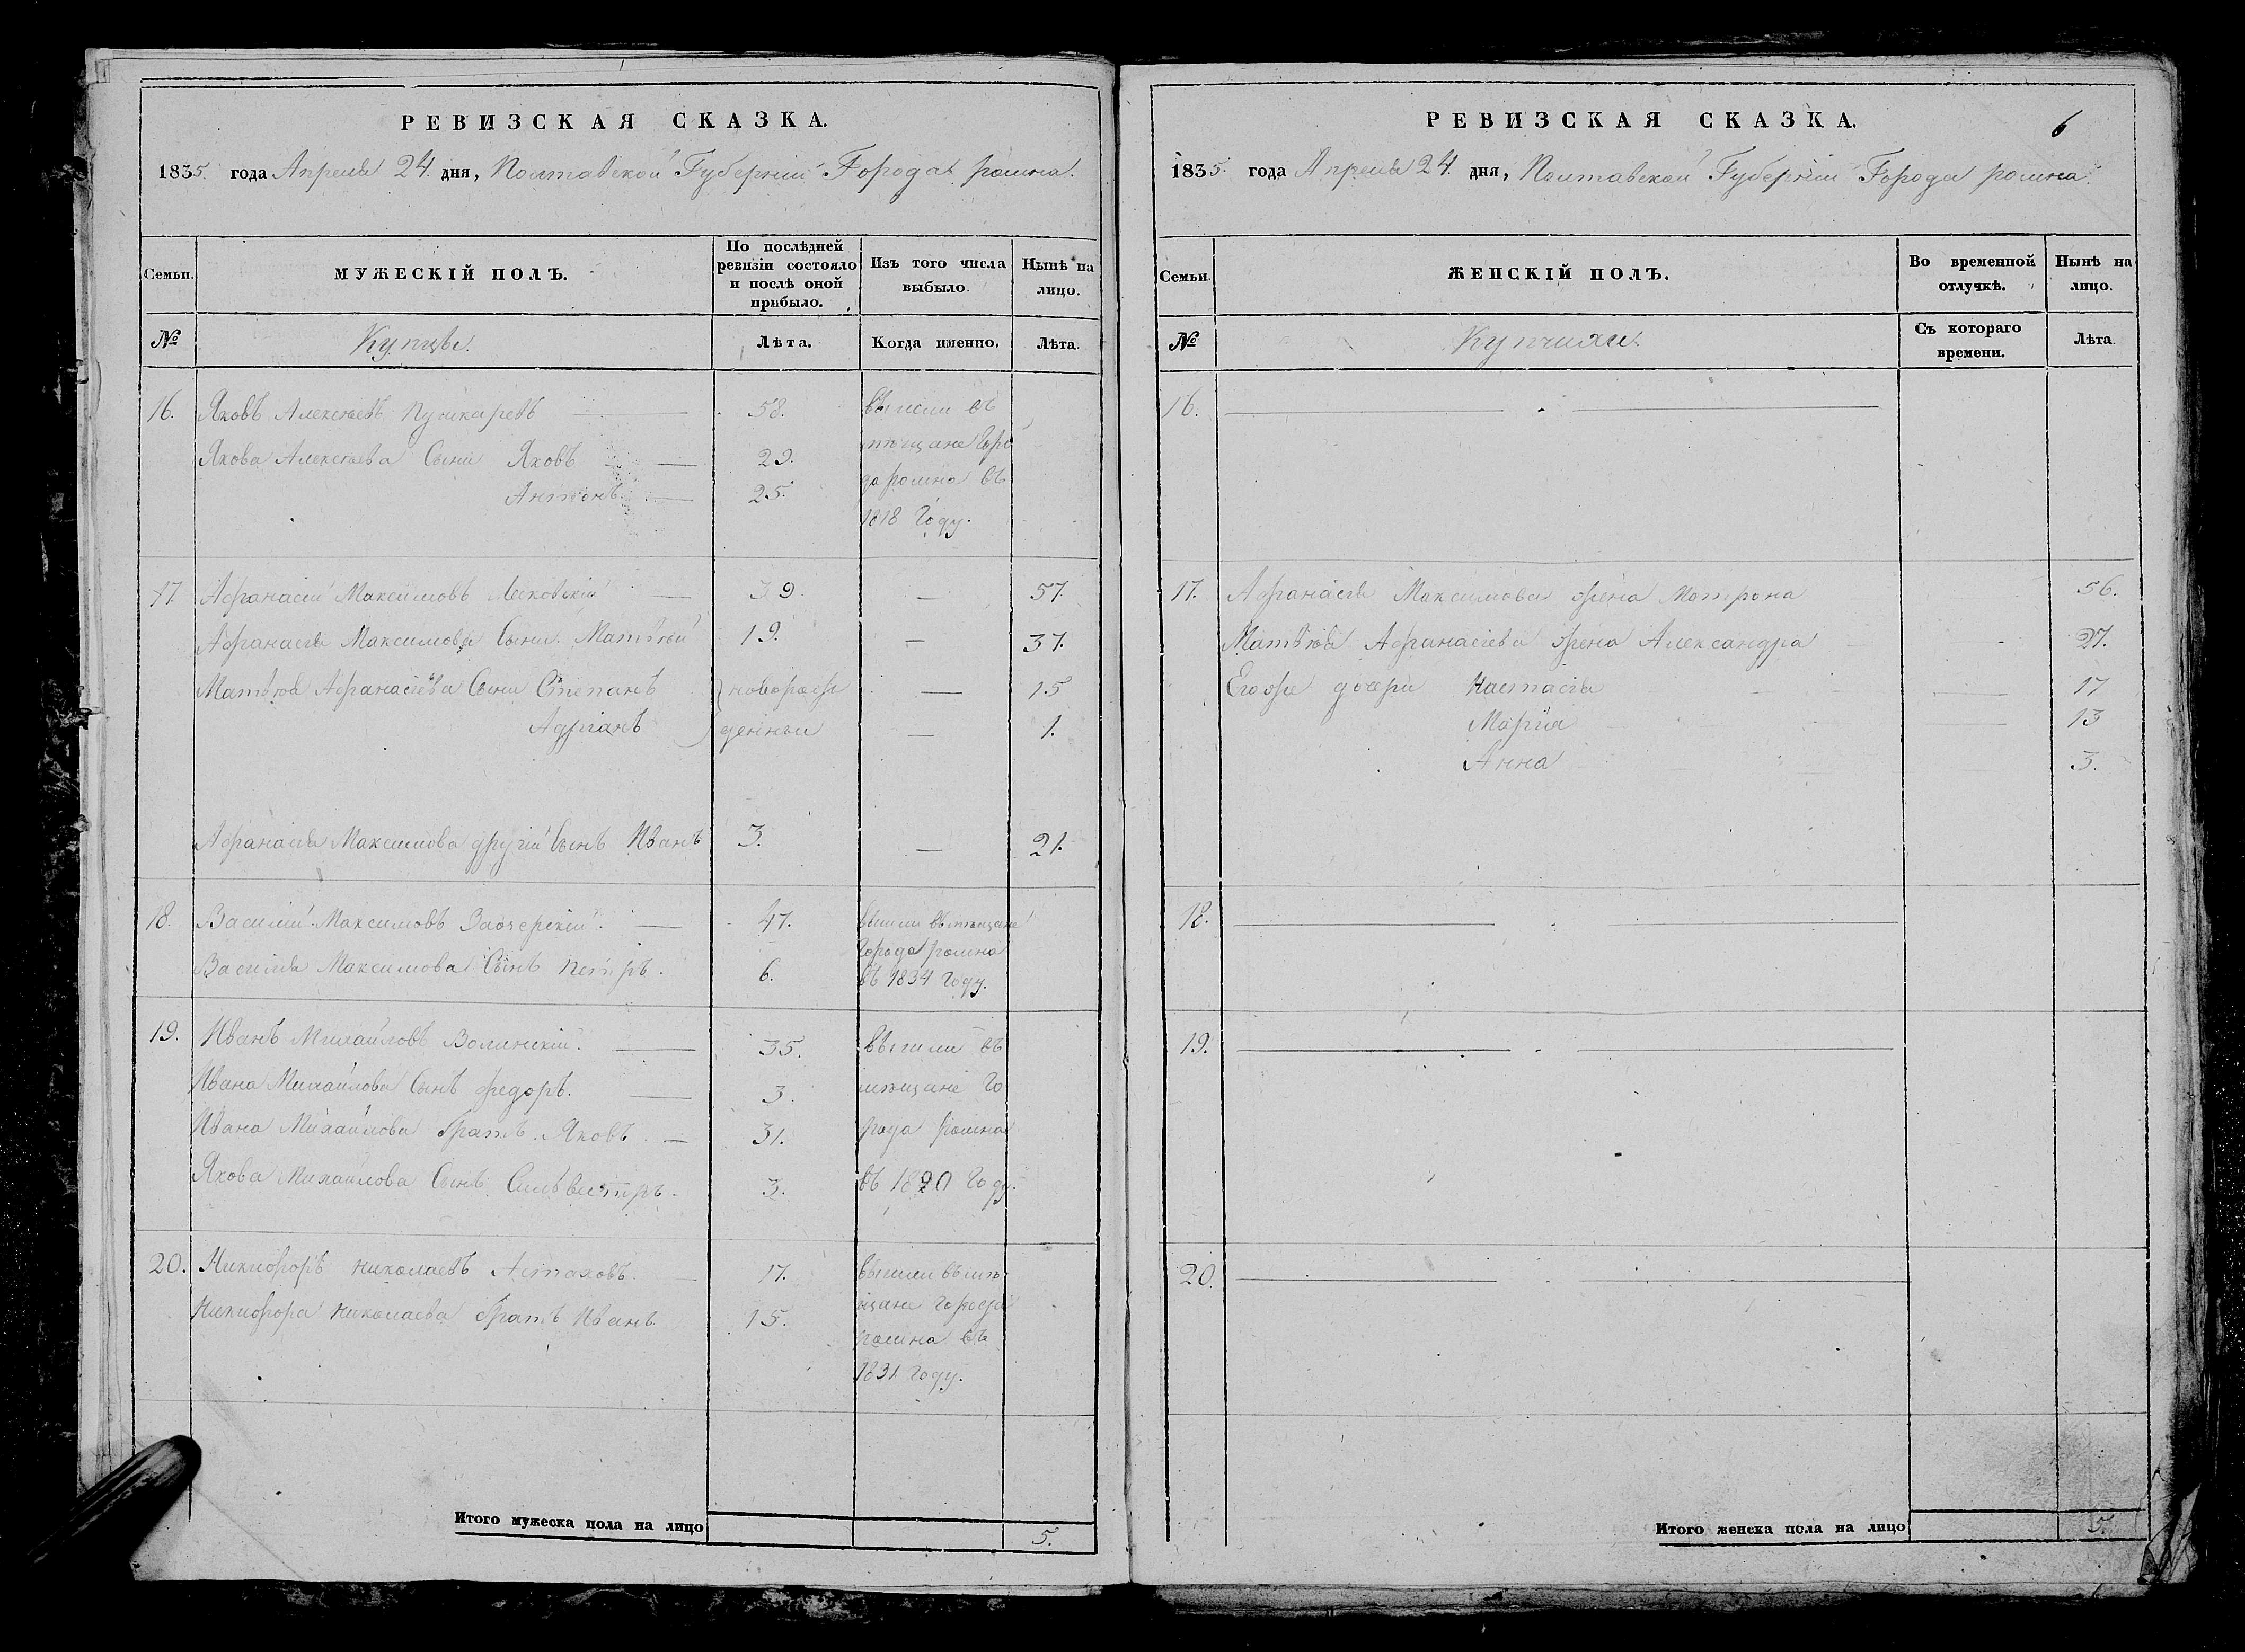 РЕВИЗСКАЯ СКАЗКА.
1835 года Апреля 24. дня, Полтавской Губернии Города ромна.
Семьи. МУЖЕСКІЙ ПОЛЪ. По послѣдней ревизіи состояло и послѣ оной прибыло. Изъ того числа выбыло. Нынѣ на лицо.
№ Купцы. Лѣта. Когда именно. Лѣта.
16. Яковъ Алексѣевъ Пушкаревъ 58. вышли въ
Якова Алексѣева Сыны Яковъ 29. мѣщане горо
Антонъ 25. да ромна въ
1818 году.
17. Афанасій Максимовъ 39. — 57.
Афанасія Максимова Сыны Матвѣй 19. — 37.
Матвѣя Афанасіева Сыны Степанъ новорож — 15
Адріанъ денныи — 1.
Афанасія Максимова другій Сынъ Иванъ 3. — 21.
18. Василій Максимовъ 47. вышли въ мѣщане
Василія Максимова Сынъ Петръ. 6. города ромна
въ 1834 году.
19. Иванъ Михайловъ Волинскій. 35. вышли въ
Ивана Михайлова Сынъ Федоръ. 3. мѣщане го
Ивана Михайлова братъ Яковъ. 31. рода ромна
Якова Михайлова Сынъ Сильвестръ. 3. въ 1820 году.
20. Никифоръ Николаевъ Астаховъ. 17. вышли въ мѣ
Никифора Николаева братъ Иванъ 15. щане города
ромна въ
1831 году.
Итого мужеска пола на лицо 5.
РЕВИЗСКАЯ СКАЗКА. 6
1835. года Апреля 24. дня, Полтавской Губернии Города ромна.
Семьи. ЖЕНСКІЙ ПОЛЪ. Во временной отлучкѣ. Нынѣ на лицо.
№ Съ котораго времени. Лѣта.
16.
17. Афанасія Максимова жена Мотрона 56.
Матвѣя Афанасіева жена Александра 27.
Его же дочери Настасія 17
Марія 13
Анна 3.
18.
19.
20.
Итого женска пола на лицо 5.